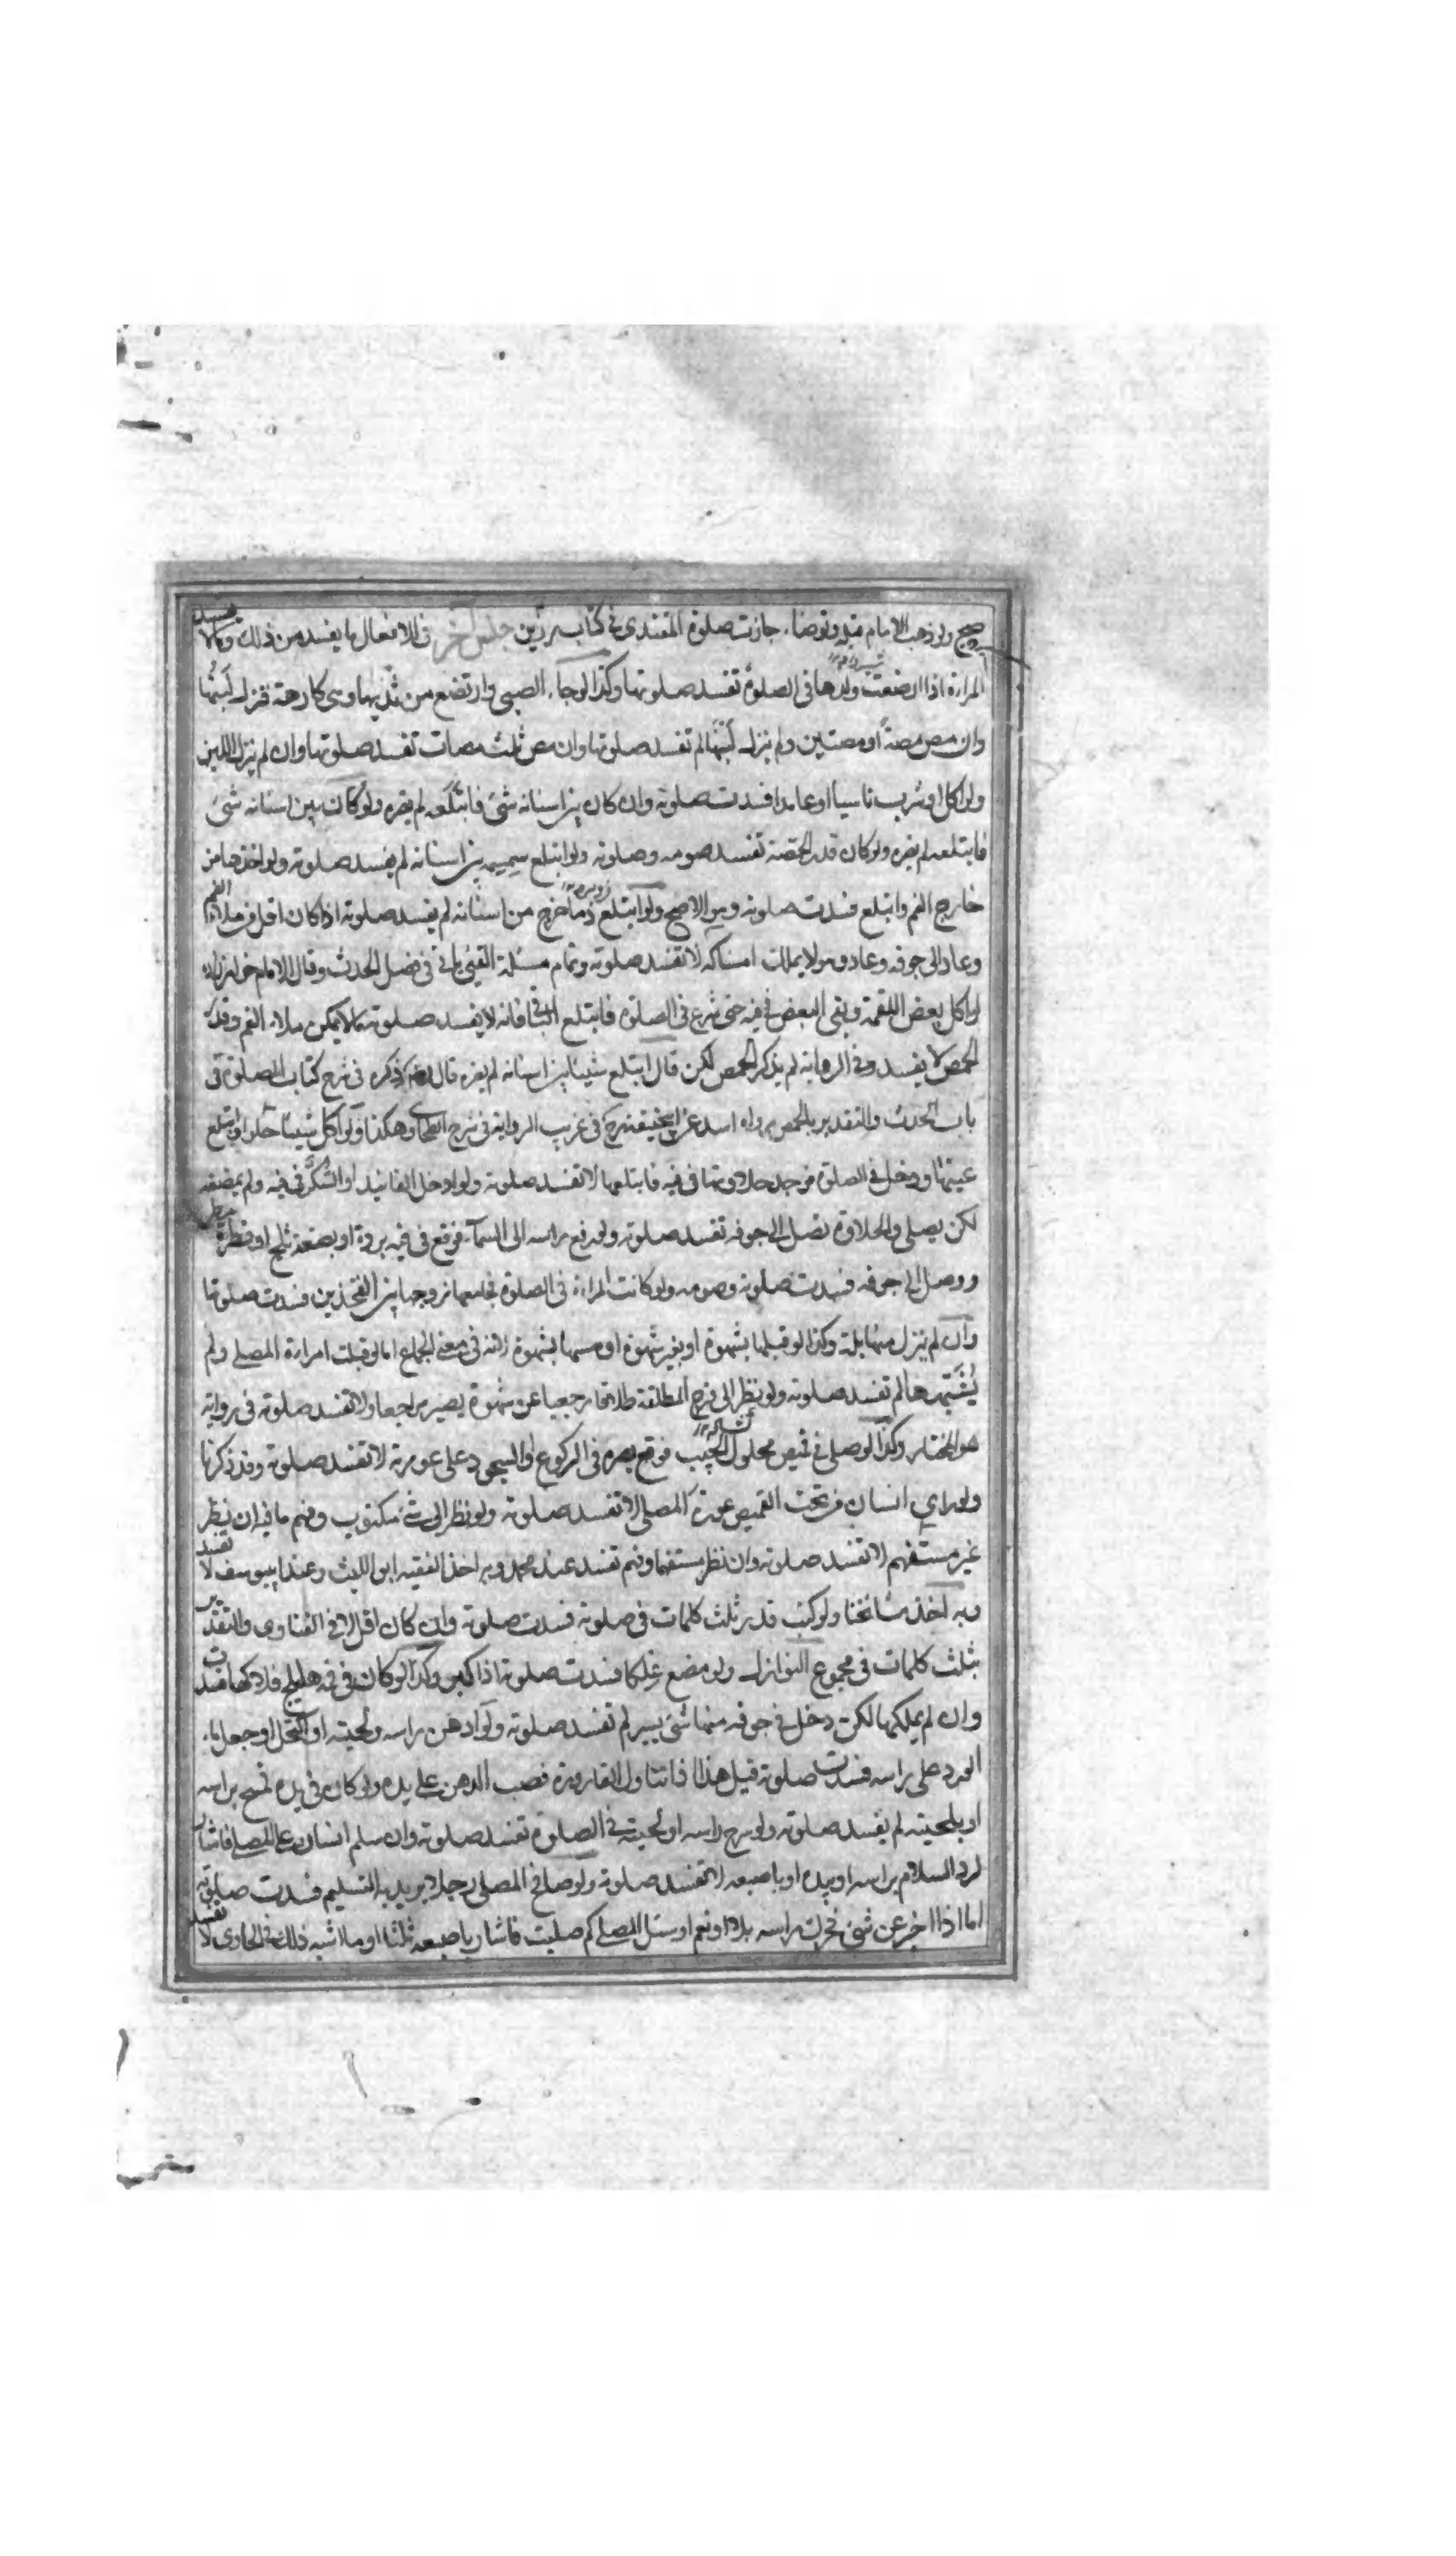 صح ولو ذهب الامام قبله وتوضا جازت صلوة المقتدى فى كتاب رزين جنس آخر فى الافعال ما يفسد من ذلك وما لا يفسد
المراة اذا ارضعت ولدها فى الصلوة تفسد صلوتها وكذا لو جاء الصبى وارتضع من ثديها وهى كارهة فنزل لبنها
وان مص مصة او مصتين ولم ينزل لبنها لم تفسد صلوتها وان مص ثلث مصات تفسد صلوتها وان لم ينزل اللبن
ولو اكل او شرب ناسيا او عامدا فسدت صلوته وان كان بين اسنانه شئ فابتلعه لم يضره ولو كان بين اسنانه شئ
فابتلعه لم يضره ولو كان قدر الحمصة تفسد صومه وصلوته ولو ابتلع سمسمة بين اسنانه لم يفسد صلوته ولو اخذها من
خارج الفم وابتلع فسدت صلوته وهو الاصح ولو ابتلع دما خرج من اسنانه لم يفسد صلوته اذا كان اقل من ملاء الفم
وعاد الى جوفه وعاد وهو لا يملك امساكه لا تفسد صلوته وتمام مسئلة القئ ياتى فى فصل الحدث وقال الامام خواهرزاده
لو اكل بعض اللقمة وبقى البعض فى فيه حتى شرع فى الصلوة فابتلع الباقى فانه لا يفسد صلوته مالم يكن ملاء الفم وقدر
الحمص لا يفسد وفى الرواية لم يذكر الحمص لكن قال ابتلع شيئا بين اسنانه لم يضره قال ذكره فى شرح كتاب الصلوة فى
باب الحدث والتقدير بالحمص رواه اسد عن ابى حنيفة فى غريب الرواية فى شرح الطحاوى وهكذا ولو اكل شيئا حلوا وابتلع
عينها ودخل فى الصلوة فوجد حلاوتها فى فيه فابتلعها لا تفسد صلوته ولو ادخل الفانيد او السكر فى فيه ولم يمضغه
لكن يصلى والحلاوة تصل الى جوفه تفسد صلوته ولو رفع راسه الى السماء فوقع فى فيه بردة او بضعة ثلج او قطرة مطر
ووصل الى جوفه فسدت صلوته وصومه ولو كانت المراة فى الصلوة فجامعها زوجها بين الفخذين فسدت صلوتها
وان لم ينزل منها بلة وكذا لو قبلها بشهوة او بغير شهوة او مسها بشهوة لانه فى معنى الجماع اما لو قبلت امراة المصلى ولم
يشتهها لم تفسد صلوته ولو نظر الى فرج المطلقة طلاقا رجعيا عن شهوة يصير مراجعا ولا تفسد صلوته فى رواية
هو المختار وكذا لو صلى فى قميص محلول الجيب فوقع بصره فى الركوع او السجود على عورته لا تفسد صلوته وقد ذكرنا
ولو راى انسان من تحت القميص عورة المصلى لا تفسد صلوته ولو نظر الى شئ مكتوب وفهم ما فيه ان نظر
غير مستفهم لا تفسد صلوته وان نظر مستفهما وفهم تفسد عند محمد وبه اخذ الفقيه ابو الليث وعند ابى يوسف لا تفسد
وبه اخذ مشائخنا ولو كتب قدر ثلث كلمات فى صلوته فسدت صلوته وان كان اقل لا فى الفتاوى والتقدير
بثلث كلمات فى مجموع النوازل ولو مضغ علكا فسدت صلوته اذا كثير وكذا لو كان فى فيه هليلج فلاكها فسدت
وان لم يلكها لكن دخل فى جوفه منها شئ يسير لم تفسد صلوته ولو ادهن راسه ولحيته او اكتحل او جعل ماء
الورد على راسه فسدت صلوته قيل هذا اذا تناول القارورة فصب الدهن على يده ولو كان فى يده فمسح براسه
او بلحيته لم يفسد صلوته ولو سرح راسه او لحيته فى الصلوة تفسد صلوته وان سلم انسان على المصلى فاشار
لرد السلام براسه او بيده او باصبعه لا تفسد صلوته ولو صافح المصلى رجلا يريد به التسليم فسدت صلوته
اما اذا اخبر عن شئ فحرك راسه بلا او نعم او سئل المصلى كم صليت فاشار باصبعه ثلثا او ما اشبه ذلك فى الحاوى لا تفسد